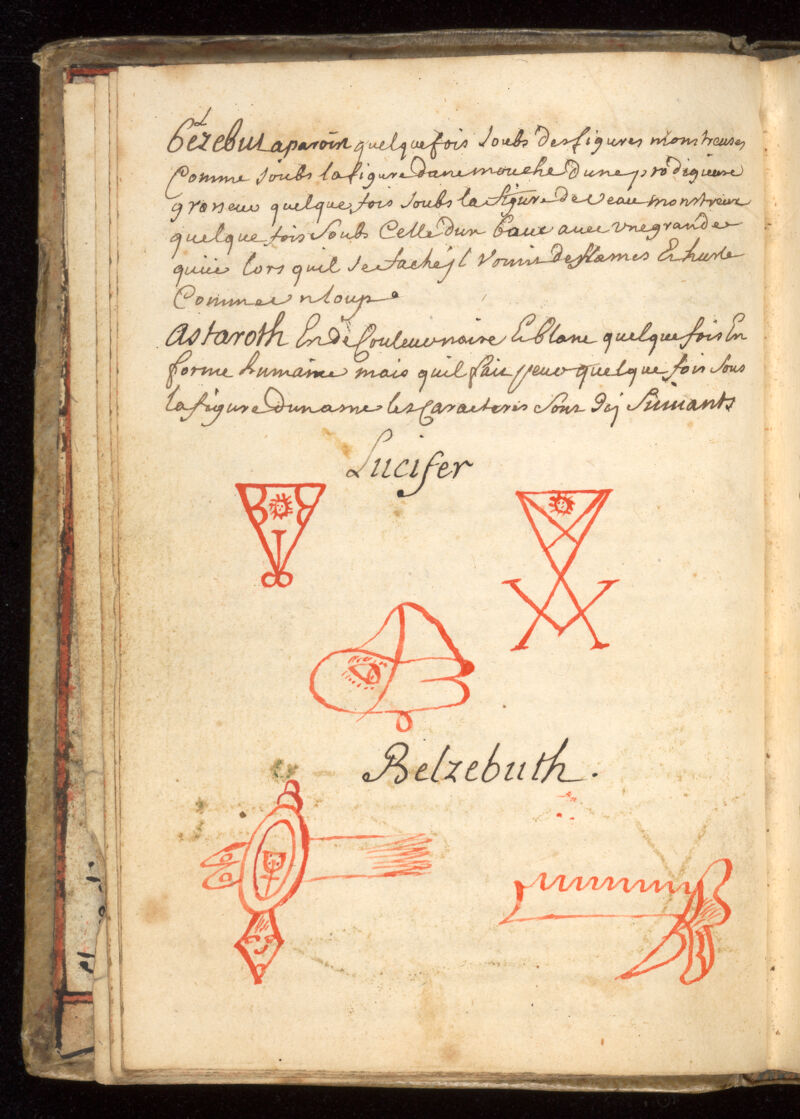 Belzebut aparoist quelquefois soubs des figures monstreuses
Comme soubs la figure dune mouche Dune prodigieuse
groseur quelque fois soubs la figure De veau monstreux
quelque fois soubs Celle dun baux avec vne grande
quüe lors quil se fache jl vomit des flames Et hurle
Comme vn loup
Astaroth En De Couleur noire Et Blanc quelque fois En
forme humaine mais quil fait peur quelque fois sous
la figure dun asne les Caracteres sont Icij Suiuants
Lucifer
Belzebuth.